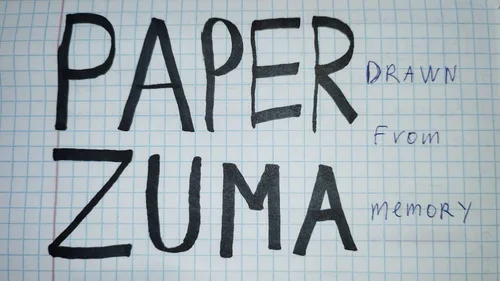 PAPER
ZUMA
DRAWN
From
memory